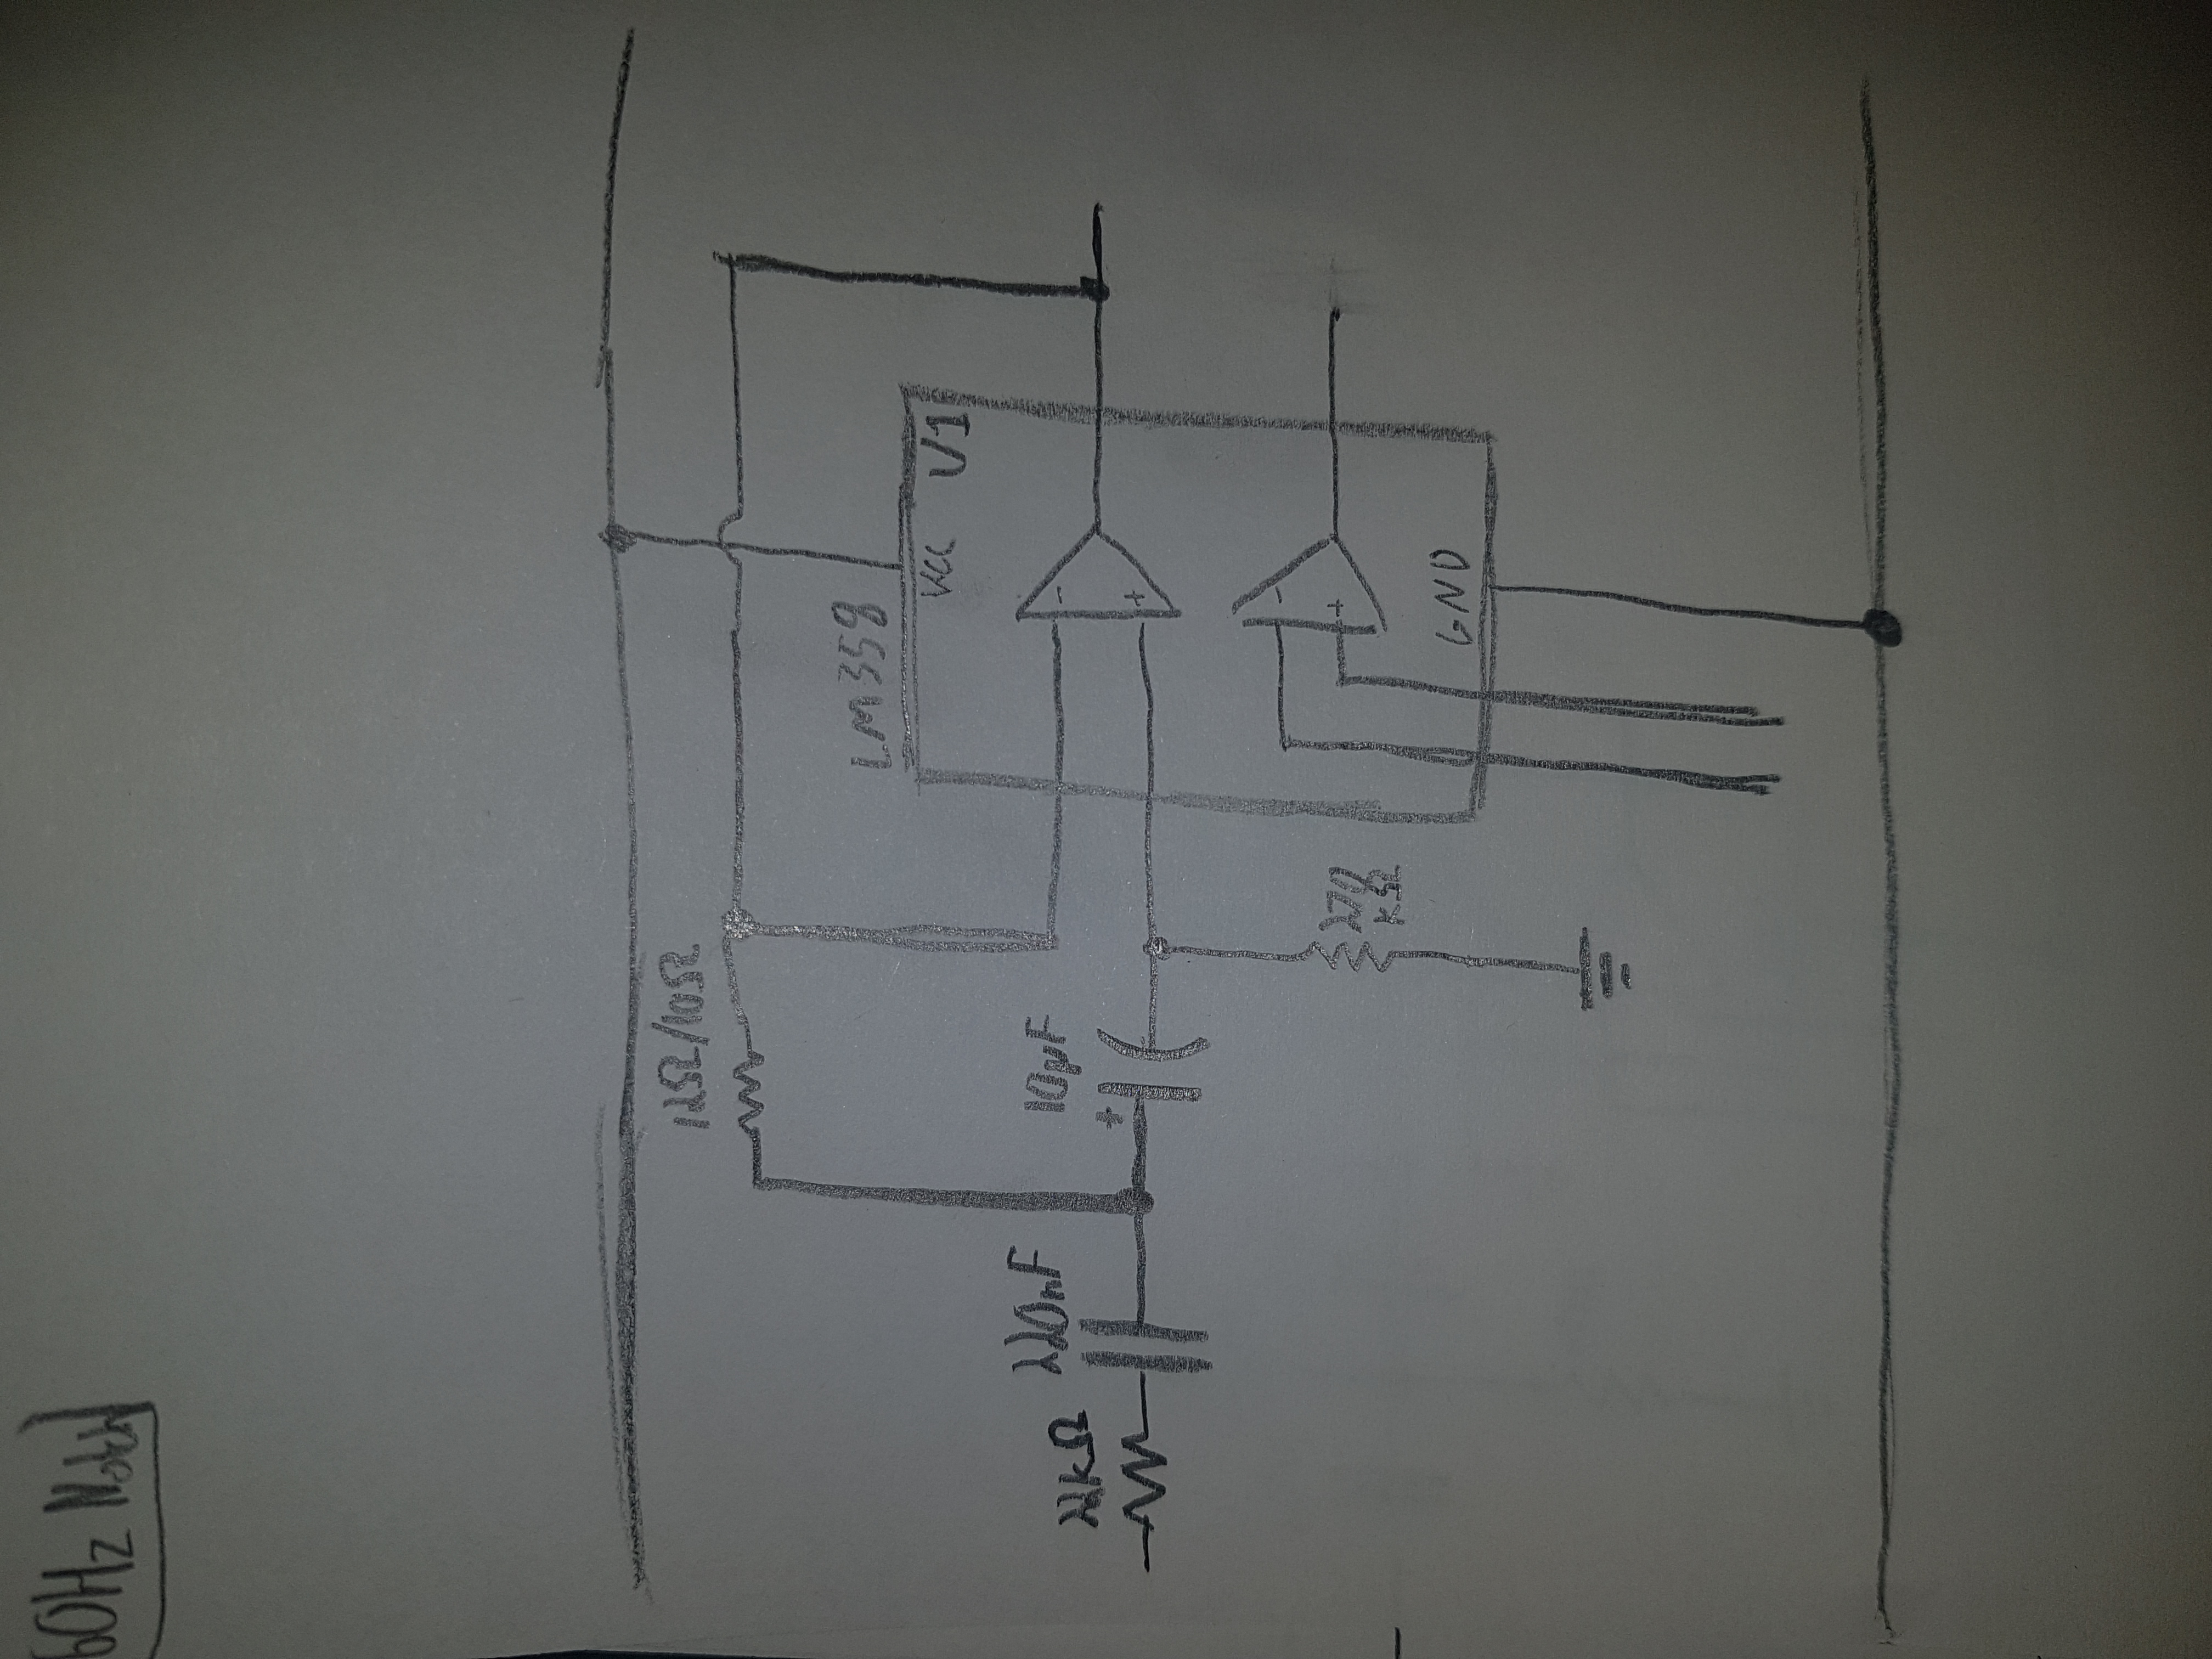 60Hz Notch
12Ω/10Ω
LM358
VCC U1
220nF
10µF
22kΩ
+
-
+
-
+
kΩ
GND